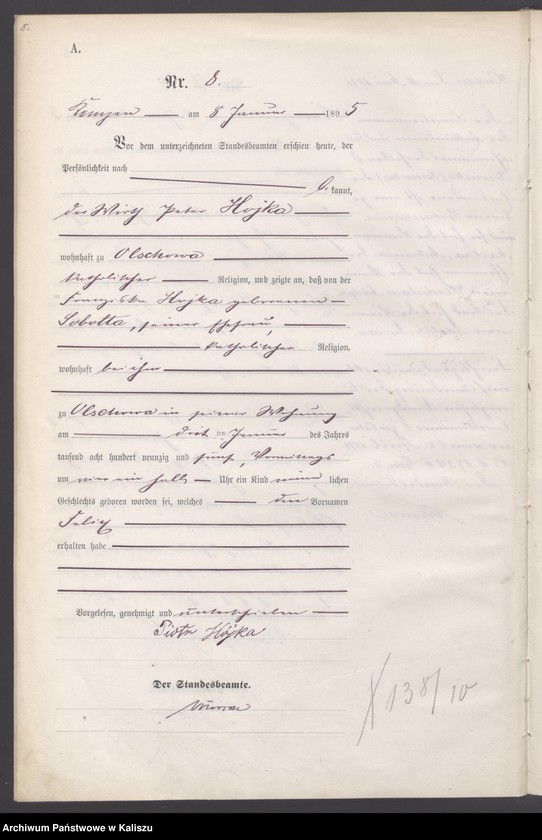 5.
A.
Nr. 8.
Kempen am 8 Januar 1895
Vor dem unterzeichneten Standesbeamten erschien heute, der
Persönlichkeit nach
be kannt,
der Wirth Peter Hojka
wohnhaft zu Olschowa
katholischer Religion, und zeigte an, daß von der
Franziska Hojka geborenen
Sobotta, seiner Ehefrau,
katholischer Religion,
wohnhaft bei ihm
zu Olschowa in seiner Wohnung
am drit ten Januar des Jahres
tausend acht hundert neunzig und fünf, Vormittags
um ein halb Uhr ein Kind männ lichen
Geschlechts geboren worden sei, welches den Vornamen
Felix
erhalten habe
Vorgelesen, genehmigt und unterschrieben
Piotr Hojka
Der Standesbeamte.
138/10
Archiwum Państwowe w Kaliszu